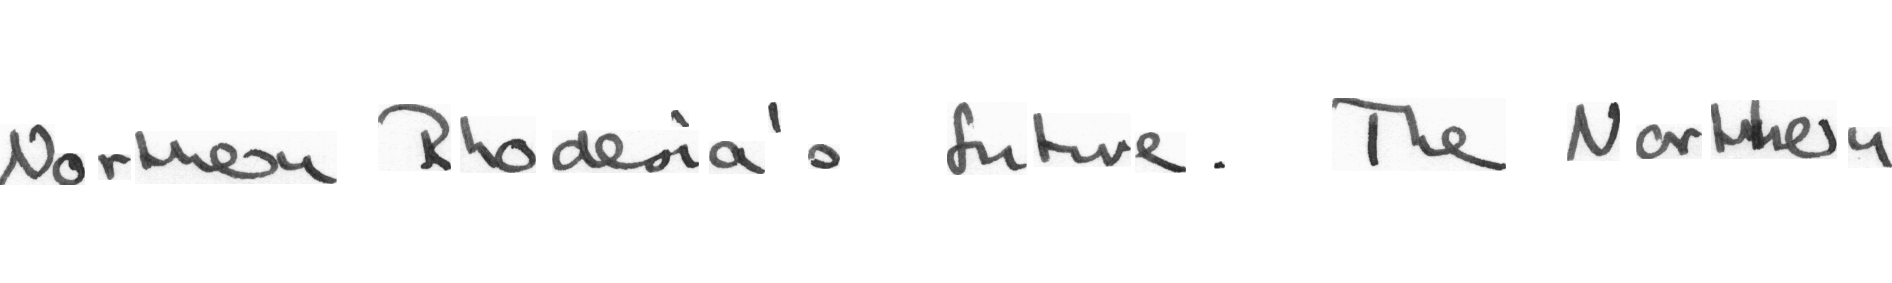 Northern Rhodesia's future. The Northern